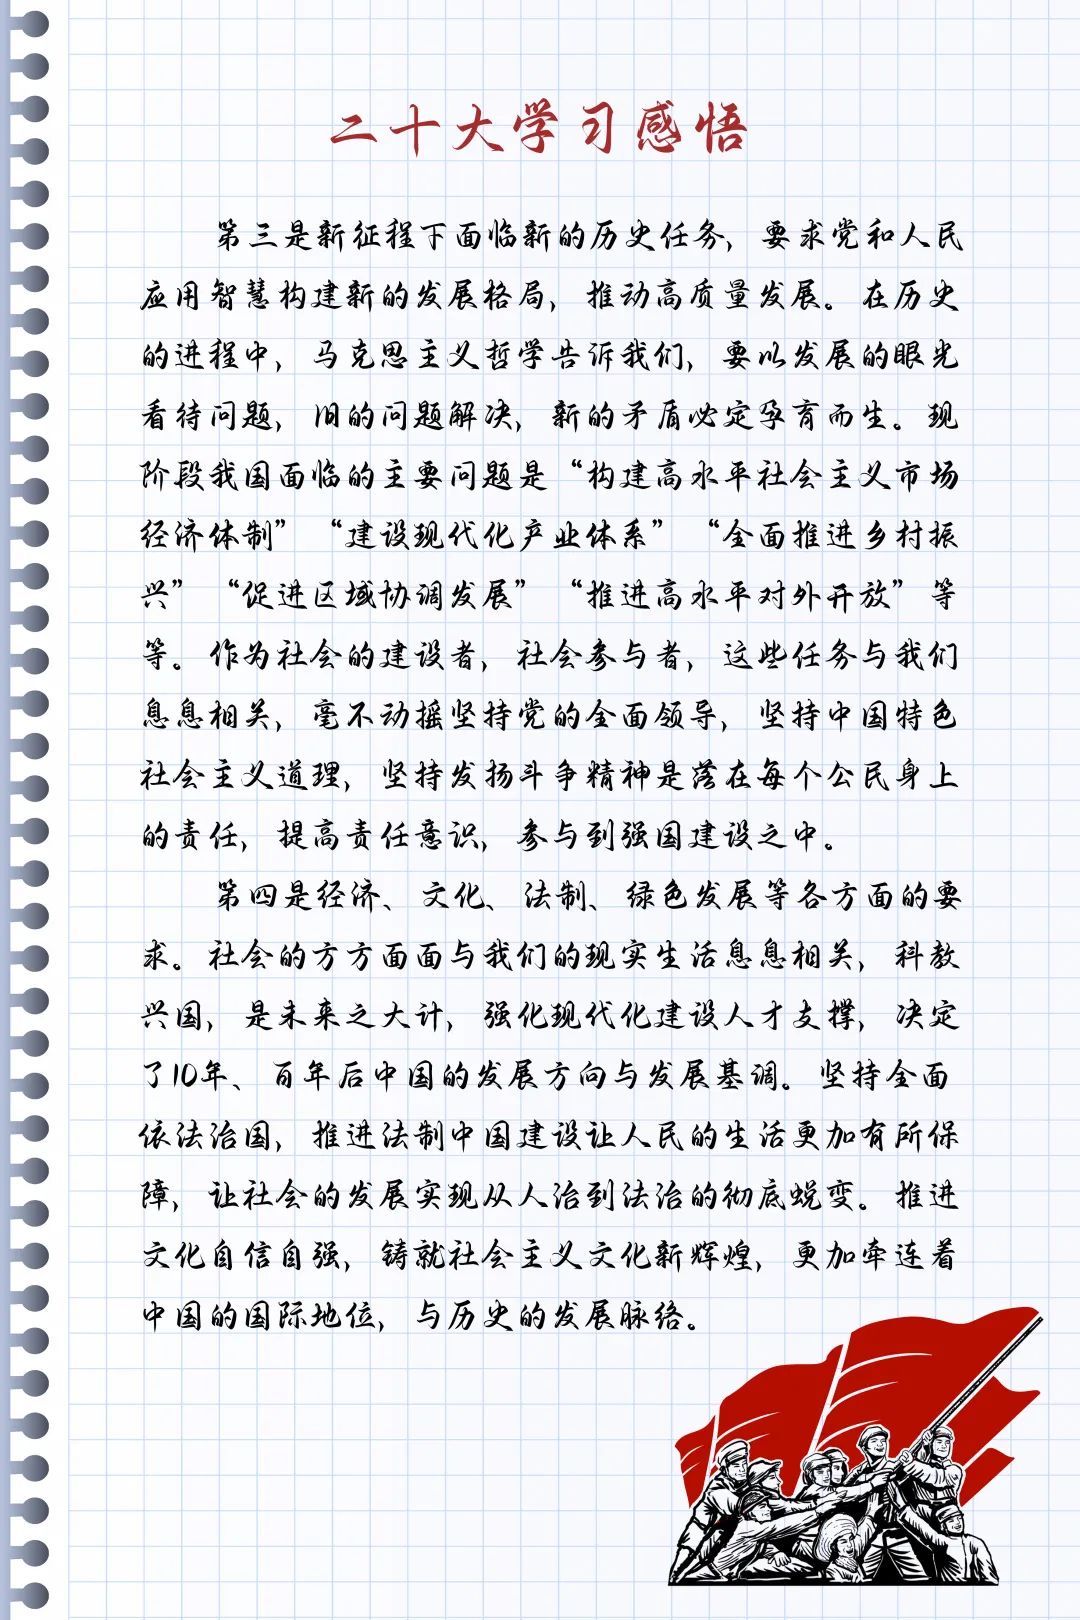 二十大学习感悟
第三是新征程下面临新的历史任务，要求党和人民
应用智慧构建新的发展格局，推动高质量发展。在历史
的进程中，马克思主义哲学告诉我们，要以发展的眼光
看待问题，旧的问题解决，新的矛盾必定孕育而生。现
阶段我国面临的主要问题是“构建高水平社会主义市场
经济体制”“建设现代化产业体系”“全面推进乡村振
兴”“促进区域协调发展”“推进高水平对外开放”等
等。作为社会的建设者，社会参与者，这些任务与我们
息息相关，毫不动摇坚持党的全面领导，坚持中国特色
社会主义道理，坚持发扬斗争精神是落在每个公民身上
的责任，提高责任意识，参与到强国建设之中。
第四是经济、文化、法制、绿色发展等各方面的要
求。社会的方方面面与我们的现实生活息息相关，科教
兴国，是未来之大计，强化现代化建设人才支撑，决定
了10年、百年后中国的发展方向与发展基调。坚持全面
依法治国，推进法制中国建设让人民的生活更加有所保
障，让社会的发展实现从人治到法治的彻底蜕变。推进
文化自信自强，铸就社会主义文化新辉煌，更加牵连着
中国的国际地位，与历史的发展脉络。